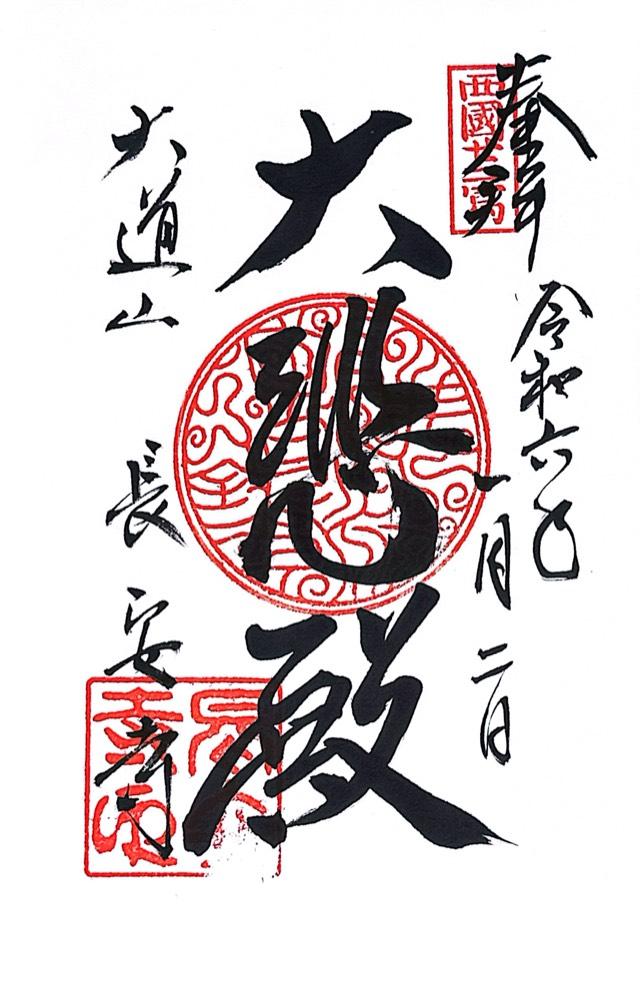 奉拝
西國廿三霊
令和六年
一月二日
大悲殿
大道山
長安寺